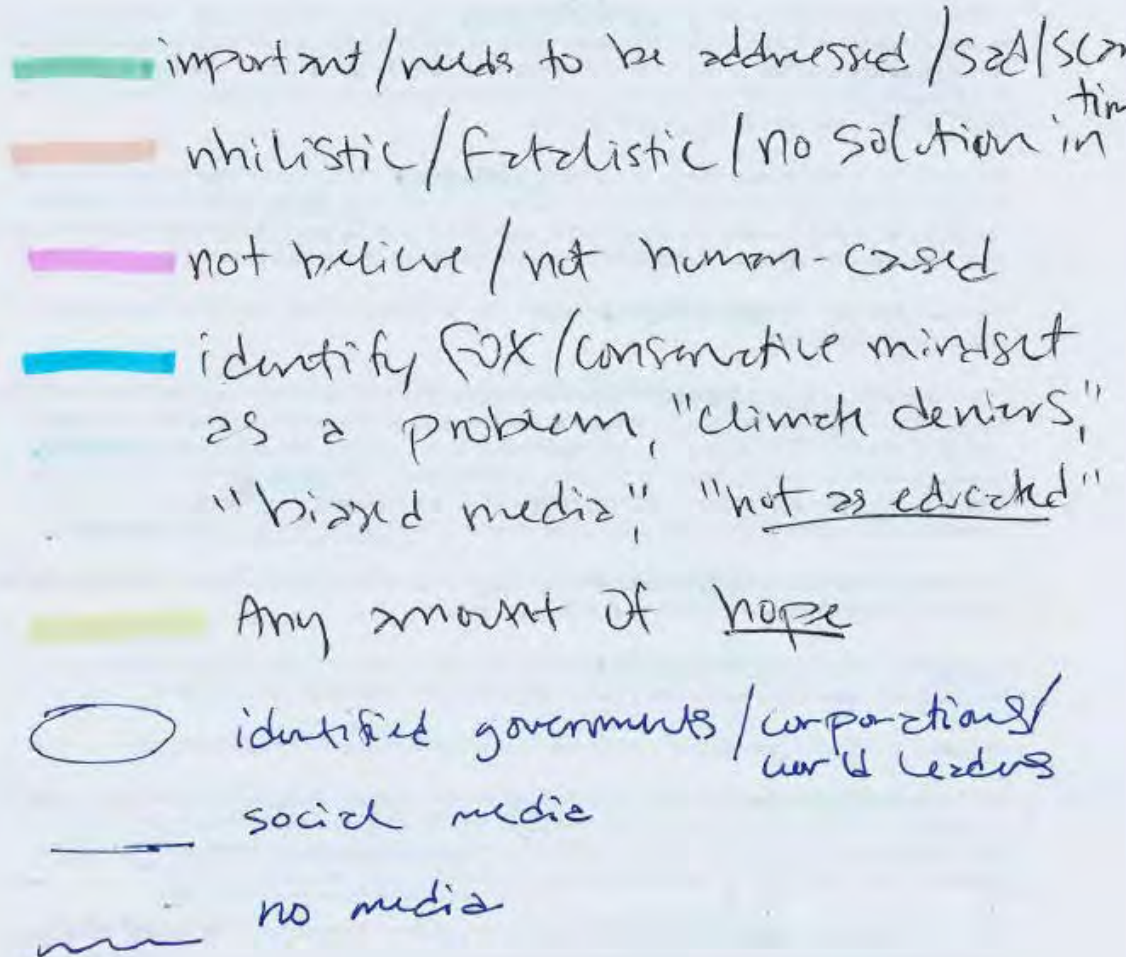 important/needs to be addressed/sad/
nhilistic/fatalistic/no solution in
not believe/not human-cased
identify FOX/conservative mindset
as a problem, "climate deniers,"
"biased media," "not as educated"
Any amount of hope
identified governments/corporations/
world leaders
social media
no media